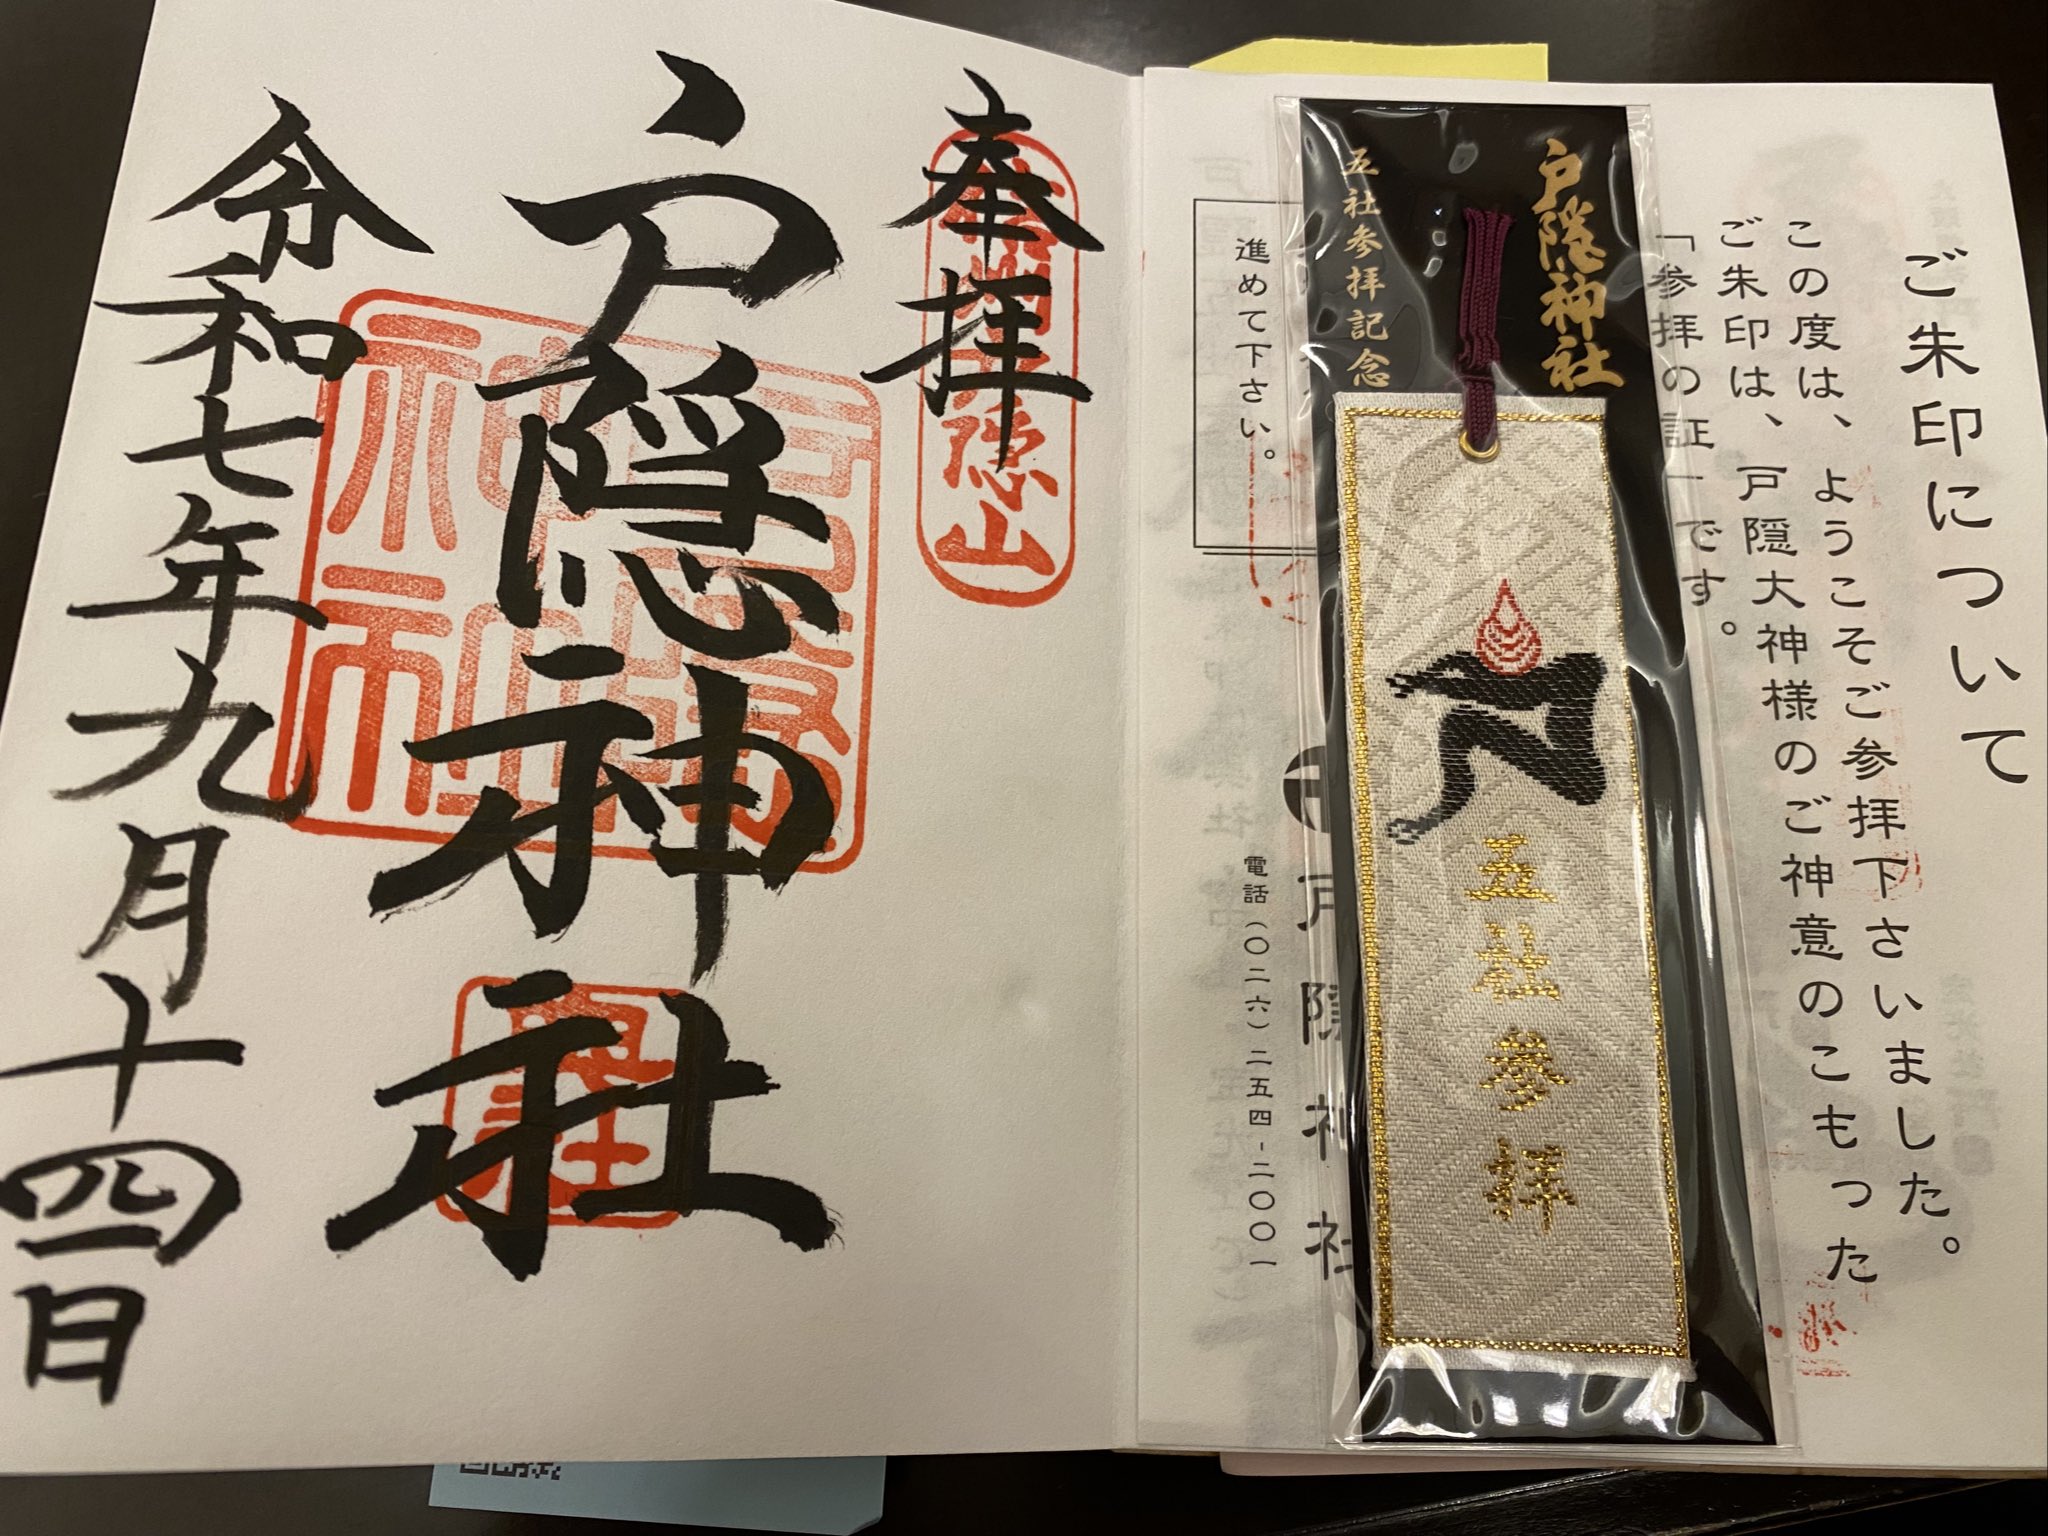 ご朱印について
この度は、ようこそご参拝下さいました。
ご朱印は、戸隠大神様のご神意のこもった
「参拝の証」です。
戸隠神社
五社参拝記念
五社参拝
進めて下さい。
戸隠神社
電話（〇二六）二五四-二〇〇一
奉拝
戸隠神社
令和七年九月十四日